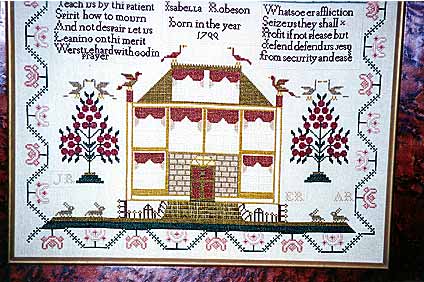 Teach us by thi patient
Spirit how to mourn
And not despair Let us
Leaning on thi merit
Werstle hard with god in
prayer
Isabella Robeson
Born in the year
1799
Whatsoe er affliction
Seizeus they shall
Profit if not please but
defend defend us Jesu
from security and ease
J R
E R
A R